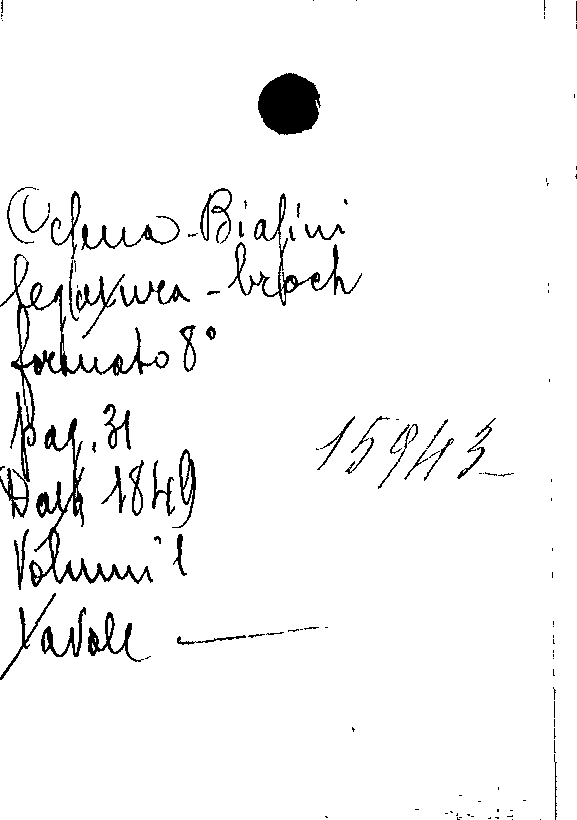 Biasini
legatura - broch
formato 8°
pag. 31
15943
Data 1849
Volumi 1
Tavole —